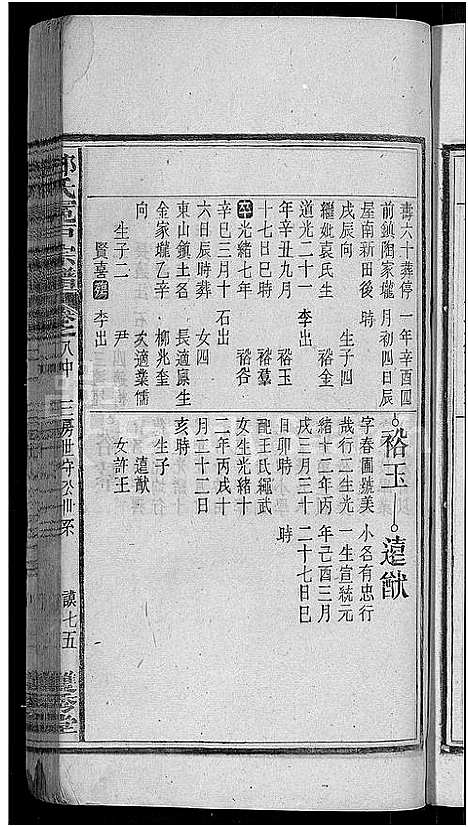 壽六十葬停
前鎮陶家壠
屋南新田後
戌辰向
繼妣袁氏生
道光二十一
年辛丑九月
十七日巳時
卒光緒七年
辛巳三月十
六日辰時葬
東山鎮土名
金家壠乙辛
向
生子二
賢喜
李出
一年辛酉四
月初四日辰
時
生子四
裕金
李出
裕玉
裕羣
裕谷
石出
女四
長適原生
柳兆奎
次適業儒
尹
李出
裕玉
字春圃號美
哉行二生光
緒十二年丙
戌三月三十
日卯時
配王氏繩武
女生光緒十
二年丙戌十
月二十二日
亥時
生子一
遠猷
女許王
遠猷
小名有忠行
一生宣統元
年己酉三月
二十七日巳
時
氏
宗譜
卷之八中
三房世守公世系
謨七五